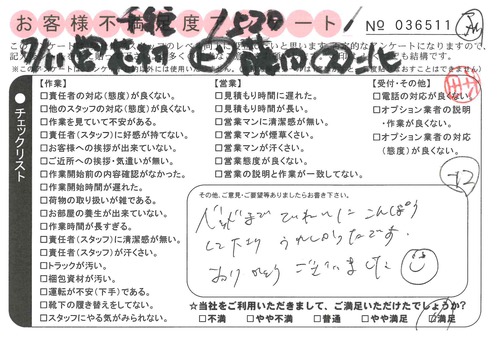 お客様不満足度アンケート
No 036511
【作業】
□責任者の対応(態度)が良くない。
□他のスタッフの対応(態度)が良くない。
□作業を見ていて不安がある。
□責任者(スタッフ)に好感が持てない。
□お客様への挨拶が出来ていない。
□ご近所への挨拶・気遣いが無い。
□作業開始前の内容確認がなかった。
□作業開始時間が遅れた。
□荷物の取り扱いが雑である。
□お部屋の養生が出来ていない。
□作業時間が長すぎる。
□責任者(スタッフ)に清潔感が無い。
□責任者(スタッフ)が汗くさい。
□トラックが汚い。
□梱包資材が汚い。
□運転が不安(下手)である。
□靴下の履き替えをしてない。
□スタッフにやる気がみられない。
【営業】
□見積もり時間に遅れた。
□見積もり時間が長い。
□営業マンに清潔感が無い。
□営業マンが煙草くさい。
□営業マンが汗くさい。
□営業態度が良くない。
□営業の説明と作業が一致してない。
【受付・その他】
□電話の対応が良くない
□オプション業者の説明
・作業が良くない。
□オプション業者の対応
(態度)が良くない。
チェックリスト
その他、ご意見・ご要望等ありましたらお書き下さい。
ていねいに こんぽう
して下さり うれしかったです。
ありがとう ございました
☆当社をご利用いただきまして、ご満足いただけたでしょうか?
□不満 □やや不満 □普通 □やや満足 □満足